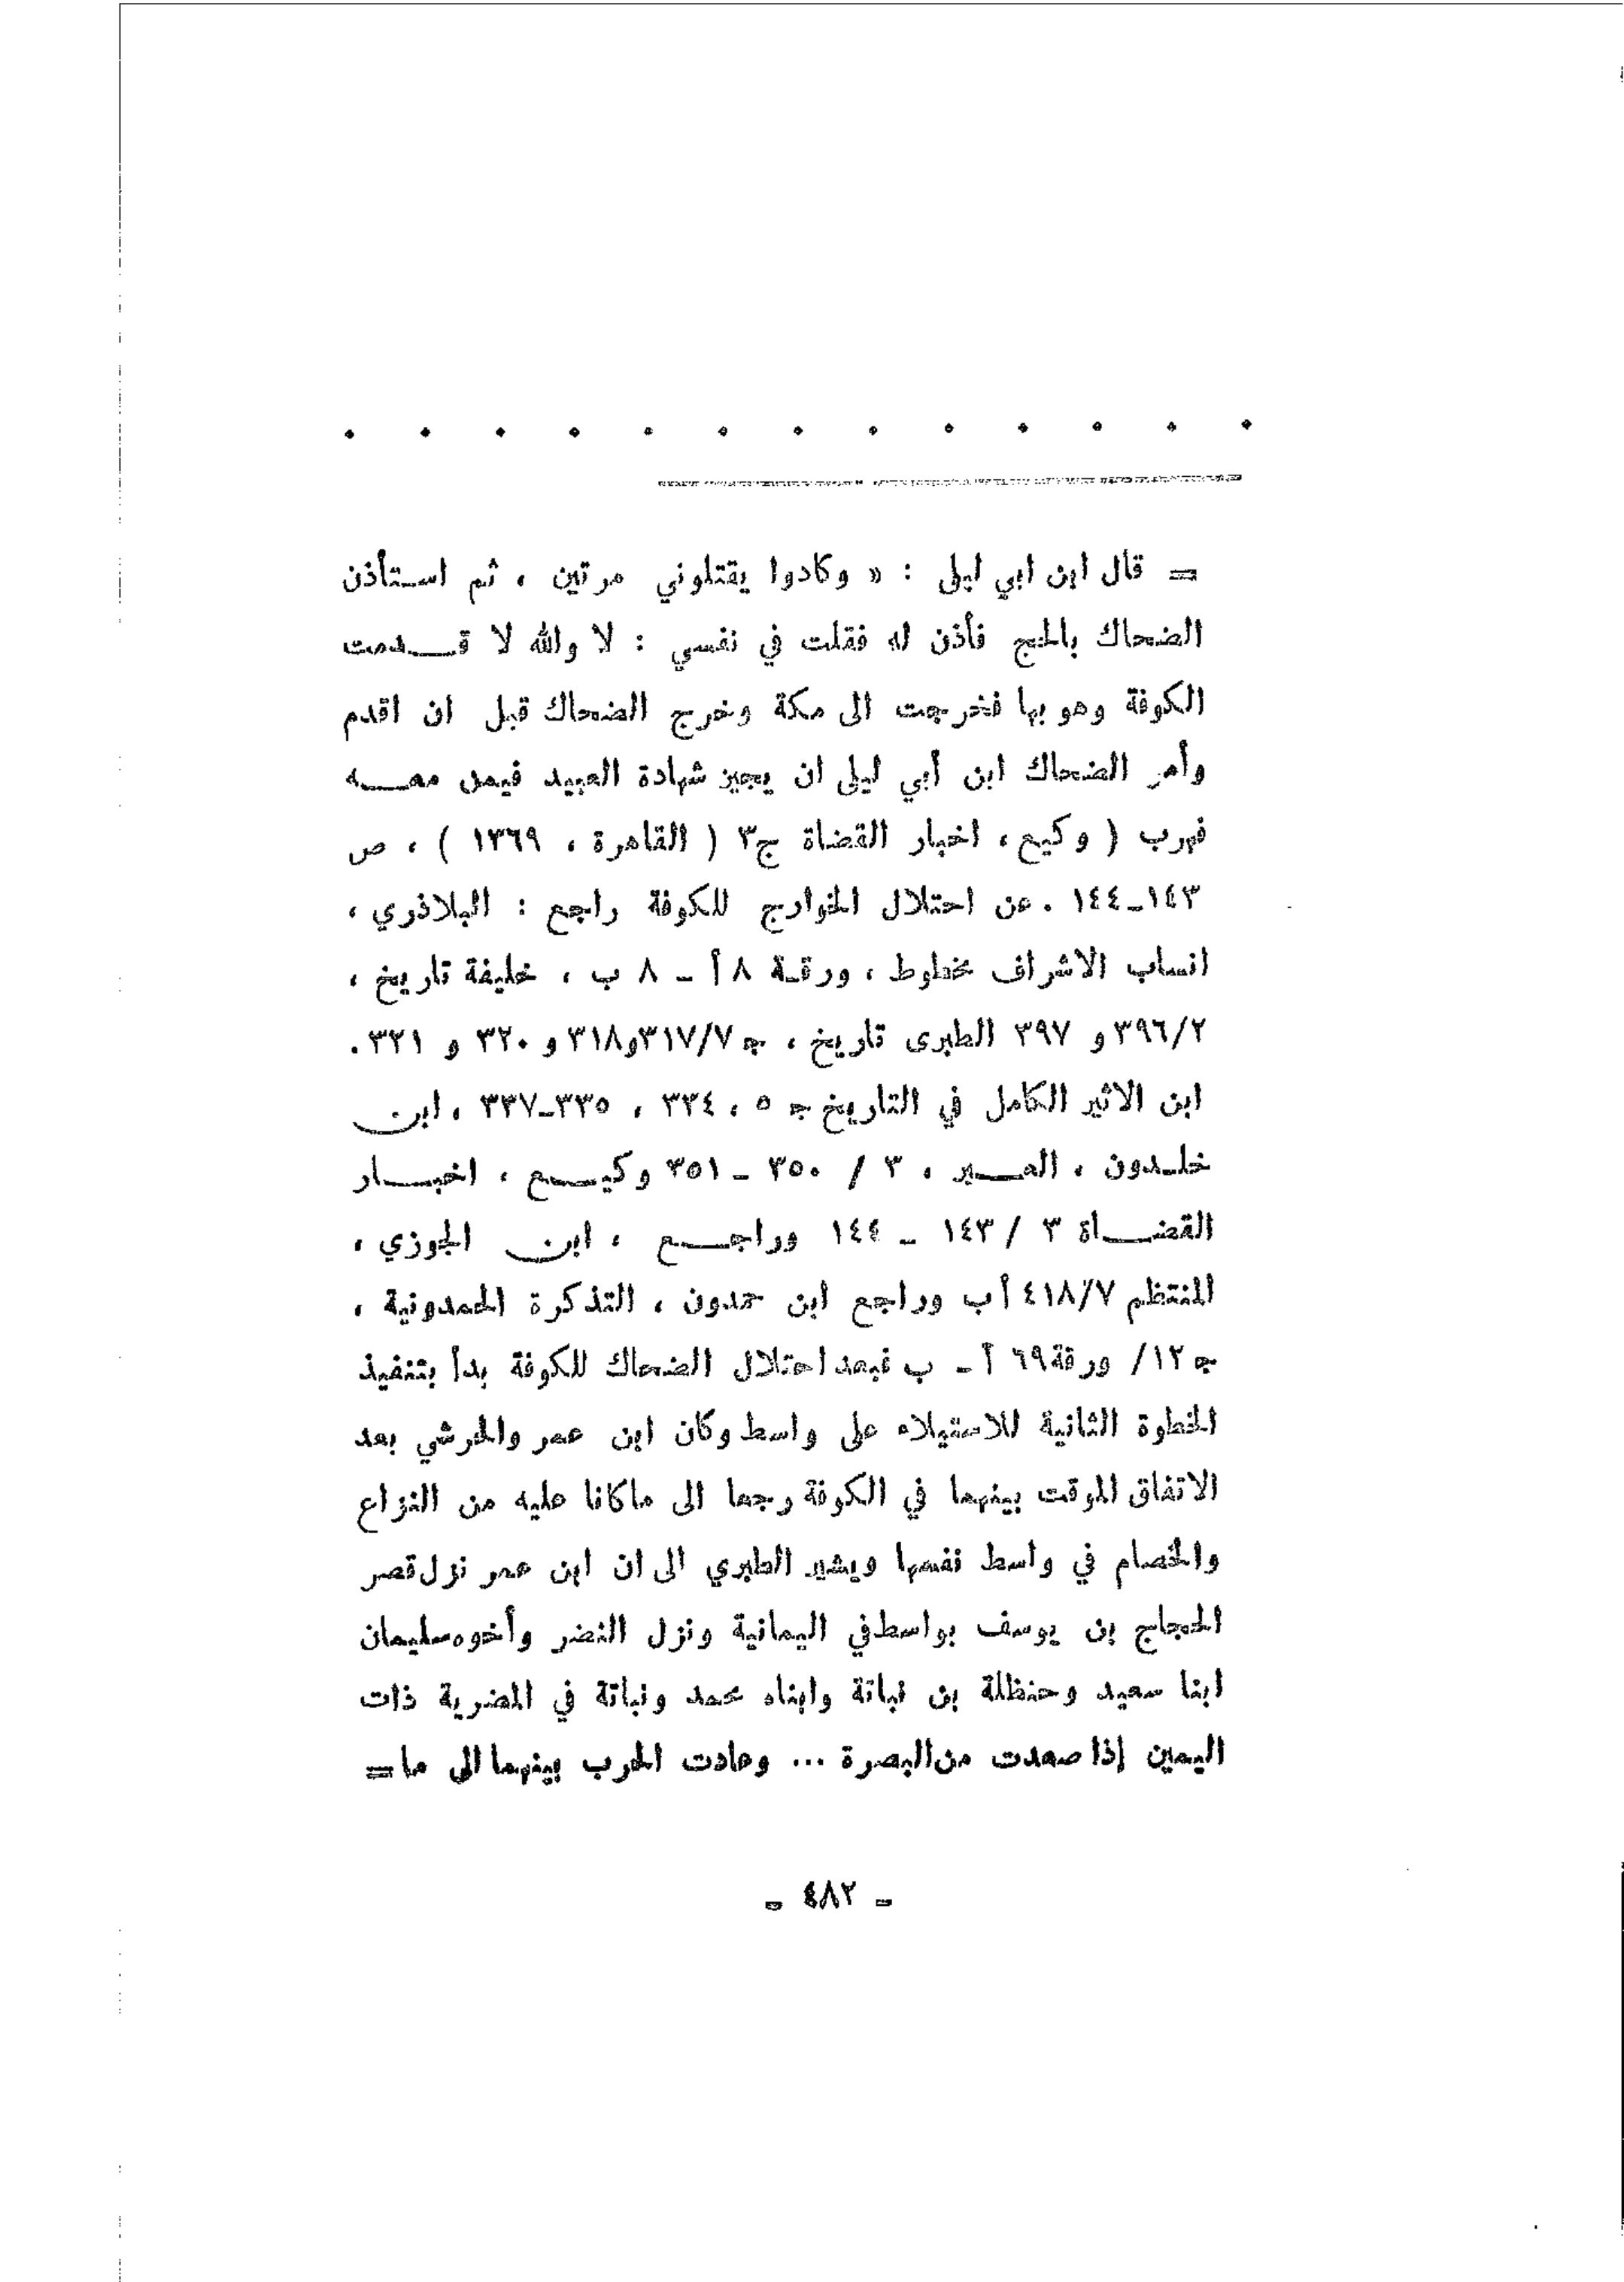 . . . . . . . . . . . . .
= قال ابن ابي ليلى : « وكادوا يقتلوني مرتين ، ثم استأذن
الضحاك بالحج فأذن له فقلت في نفسي : لا والله لا قدمت
الكوفة وهو بها فخرجت الى مكة وخرج الضحاك قبل ان اقدم
وأمر الضحاك ابن أبي ليلى ان يجيز شهادة العبيد فيمن معه
فهرب ( وكيع ، اخبار القضاة ج٣ ( القاهرة ، ١٣٦٩ ) ، ص
١٤٣ــ١٤٤ . عن احتلال الخوارج للكوفة راجع : البلاذري ،
انساب الاشراف مخطوط ، ورقة ٨ أ ــ ٨ ب ، خليفة تاريخ ،
٣٩٦/٢ و ٣٩٧ الطبرى تاريخ ، جـ ٣١٧/٧و٣١٨ و ٣٢٠ و ٣٢١.
ابن الاثير الكامل في التاريخ جـ ٥ ، ٣٣٤ ، ٣٣٥ــ٣٣٧ ، ابن
خلدون ، العبر ، ٣ / ٣٥٠ ــ ٣٥١ وكيع ، اخبار
القضاة ٣ / ١٤٣ ــ ١٤٤ وراجع ، ابن الجوزي ،
المنتظم ٤١٨/٧ أب وراجع ابن حمدون ، التذكرة الحمدونية ،
جـ ١٢/ ورقة ٦٩ أ ــ ب فبعد احتلال الضحاك للكوفة بدأ بتنفيذ
الخطوة الثانية للاستيلاء على واسط وكان ابن عمر والحرشي بعد
الاتفاق الموقت بينهما في الكوفة رجعا الى ماكانا عليه من النزاع
والخصام في واسط نفسها ويشير الطبري الى ان ابن عمر نزل قصر
الحجاج بن يوسف بواسط في اليمانية ونزل النضر وأخوه سليمان
ابنا سعيد وحنظلة بن نباتة وابناه محمد ونباتة في المضرية ذات
اليمين إذا صعدت من البصرة ... وعادت الحرب بينهما الى ما =
ــ ٤٨٢ ــ